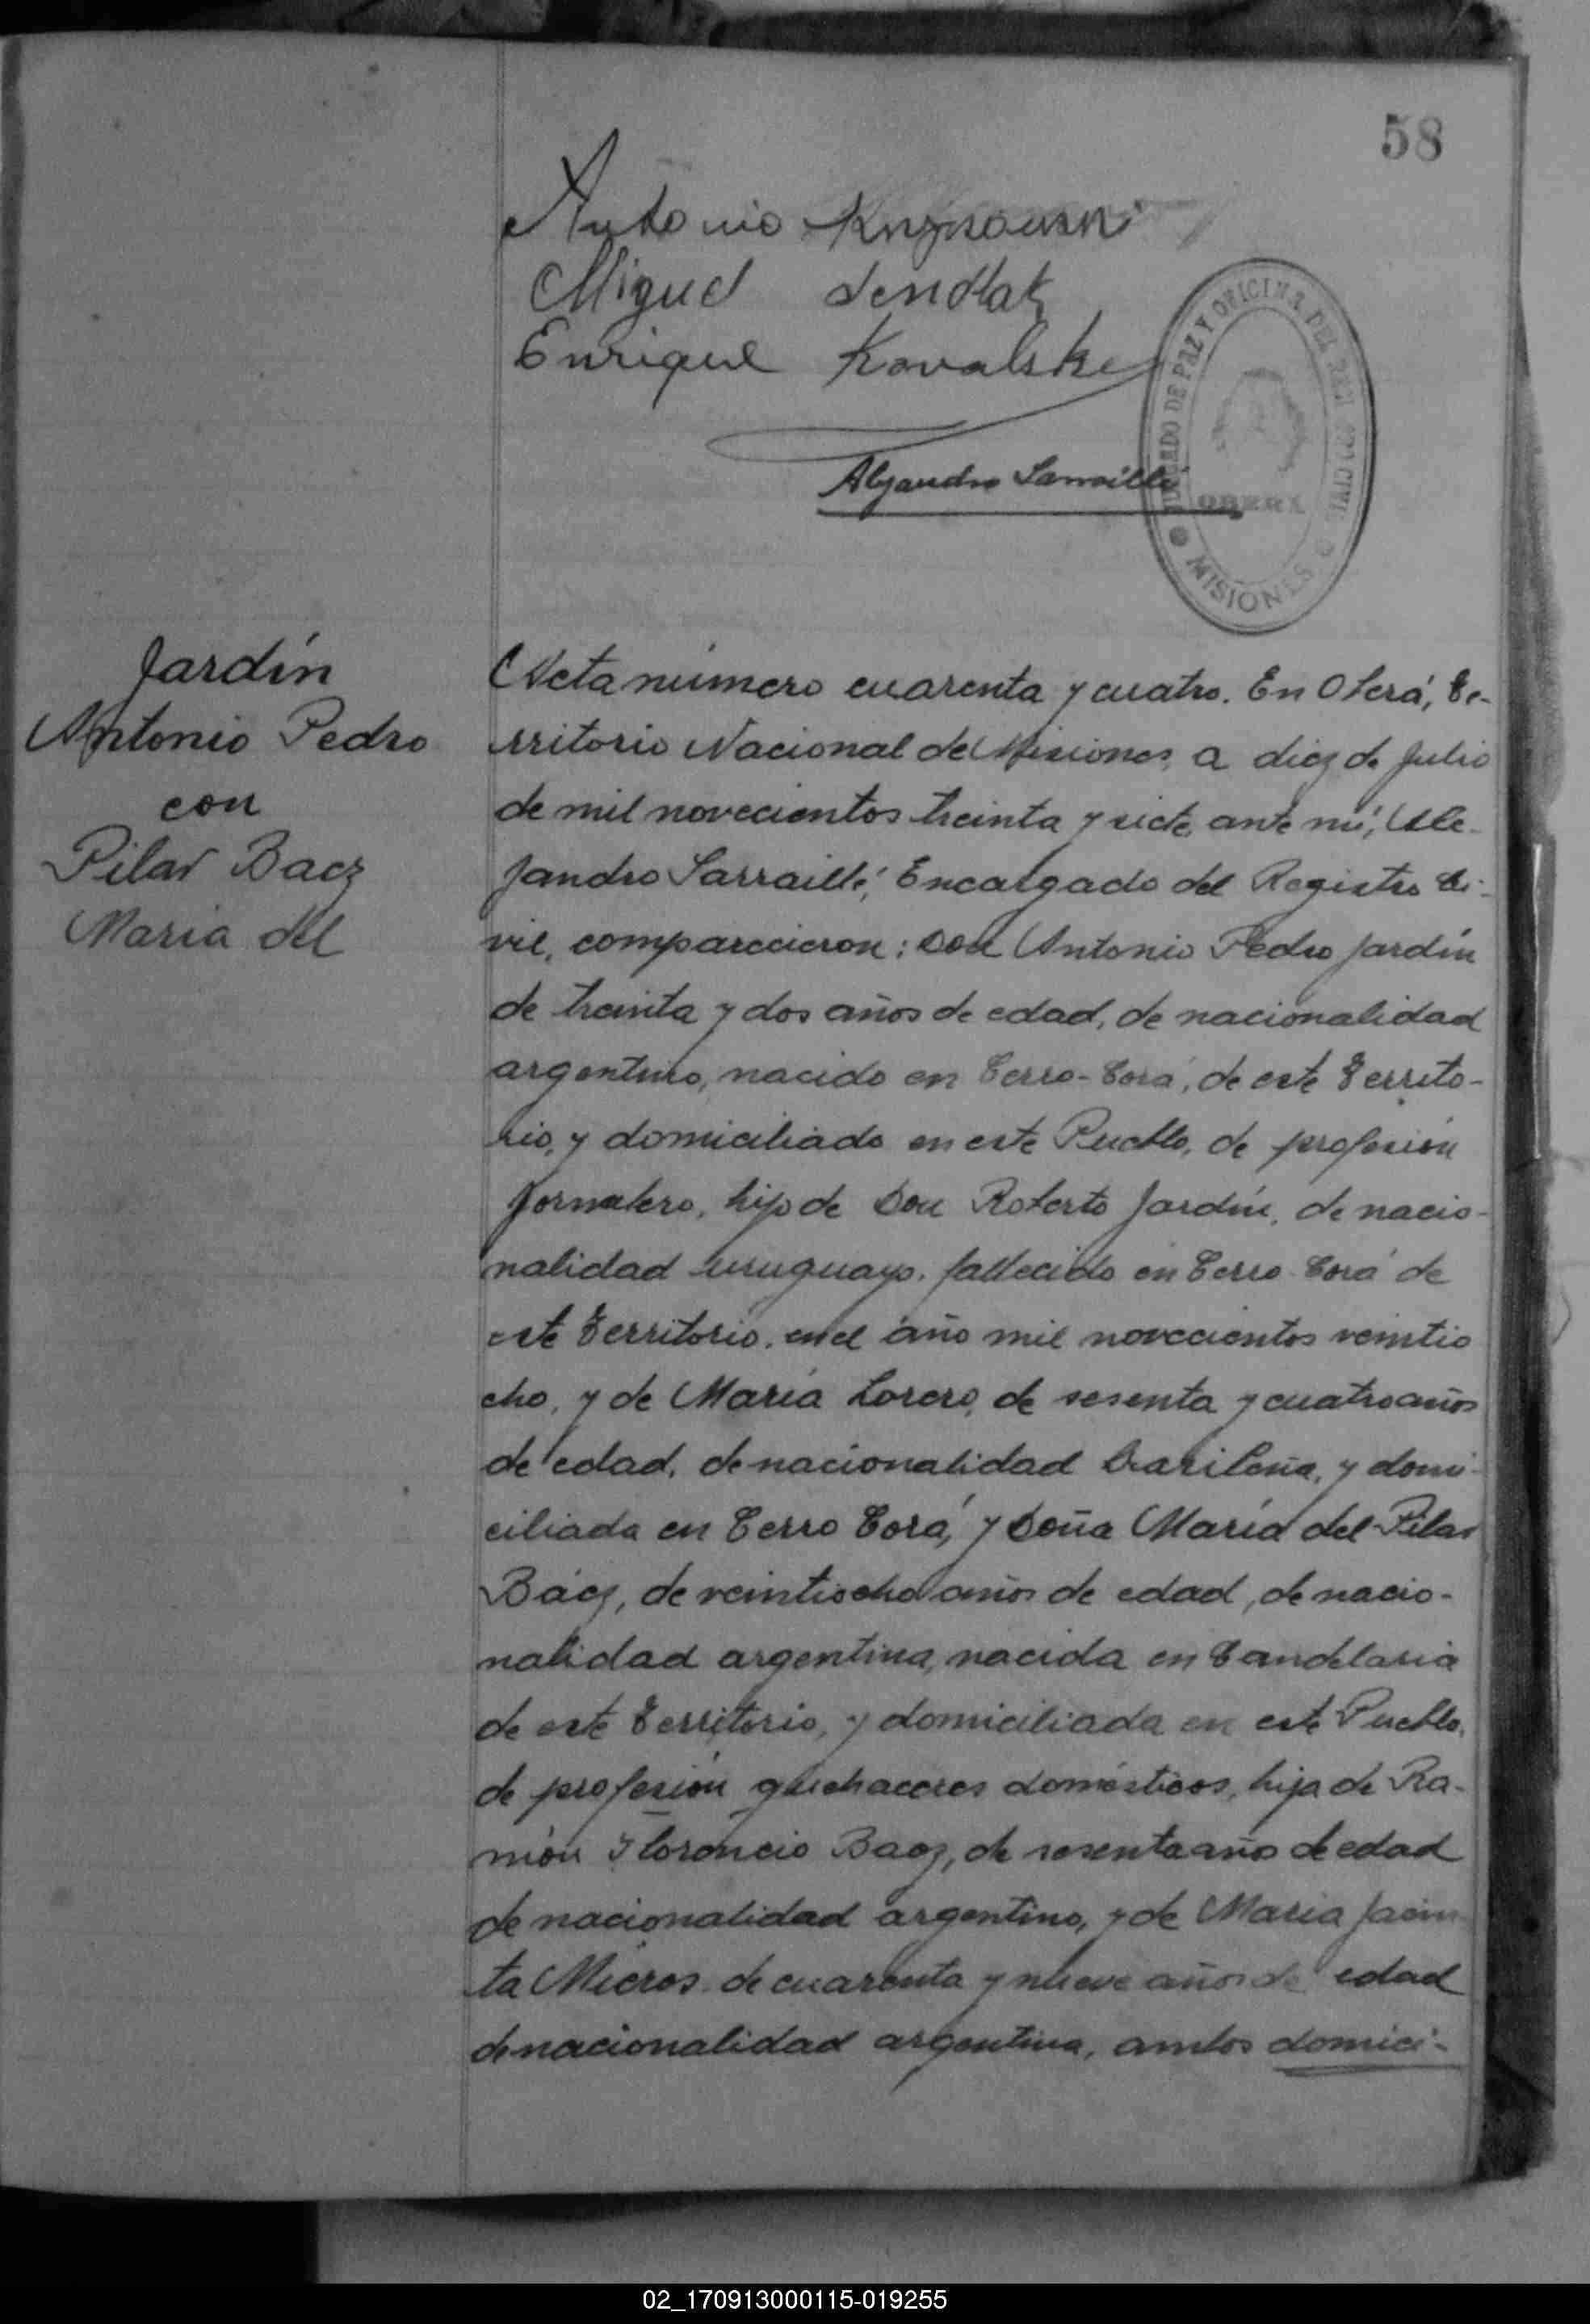 58
Antonio
Miguel Sendlak
Enrique Kovalski
Alejandro Sarraillé
JUZGADO DE PAZ Y OFICINA DEL REGISTRO CIVIL
OBERÁ
MISIONES
Jardín
Antonio Pedro
con
Pilar Baez
Maria del
Acta número cuarenta y cuatro. En Oberá, Te-
rritorio Nacional de Misiones, a diez de Julio
de mil novecientos treinta y siete, ante mí, Ale-
jandro Sarraillé, Encargado del Registro Ci-
vil, comparecieron: Don Antonio Pedro Jardín
de treinta y dos años de edad, de nacionalidad
argentino, nacido en Cerro-Corá, de este Territo-
rio, y domiciliado en este Pueblo, de profesión
Jornalero, hijo de Don Roberto Jardín, de nacio-
nalidad uruguayo, fallecido en Cerro Corá de
este Territorio, en el año mil novecientos veintio
cho, y de María Lorero, de sesenta y cuatro años
de edad, de nacionalidad brasileña, y domi-
ciliada en Cerro Corá, y Doña María del Pilar
Báez, de veintiocho años de edad, de nacio-
nalidad argentina, nacida en Candelaria
de este Territorio, y domiciliada en este Pueblo,
de profesión quehaceres domésticos, hija de Ra-
món Florencio Baez, de sesenta año de edad
de nacionalidad argentino, y de Maria Jacin-
ta Mieres, de cuarenta y nueve años de edad
de nacionalidad argentina, ambos domici-
02_170913000115-019255